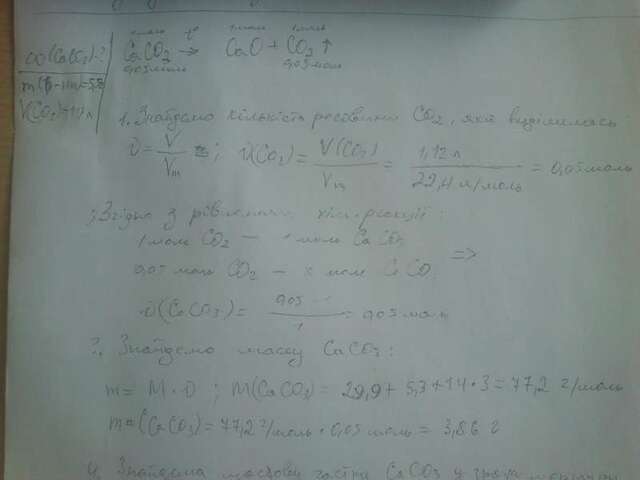 1 моль t° 1 моль 1 моль
CaCO₃ → CaO + CO₂ ↑
0,05 моль 0,05 моль
ω(CaCO₃)-?
V(CO₂)
1. Знайдемо кількість речовини CO₂, яка виділилась:
ν = V/Vm ; ν(CO₂) = V(CO₂)/Vm = 1,12 л/22,4 л/моль = 0,05 моль
Згідно з рівнянням хім. реакції:
1 моль CO₂ — 1 моль CaCO₃
0,05 моль CO₂ — x моль CaCO₃ =>
ν(CaCO₃) = 0,05 · 1/1 = 0,05 моль
Знайдемо массу CaCO₃:
m = M · ν ; M(CaCO₃) = 29,9 + 5,3 + 14 · 3 = 77,2 г/моль
m = (CaCO₃) = 77,2 г/моль · 0,05 моль = 3,86 г
4. Знайдемо CaCO₃ у